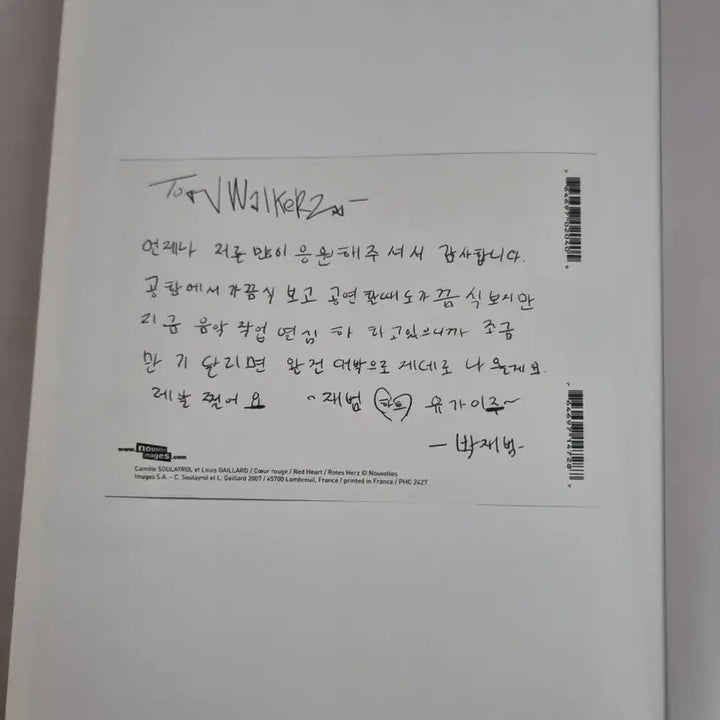 To JWalkerz~
언제나 저를 많이 응원해주셔서 감사합니다.
공항에서 가끔식 보고 공연할때도 가끔식 보지만
지금 음악 작업 열심하 하고있으니까 조금
만 기달리면 완전 대박으로 제데로 나올게요.
레알 쩔어요 ~재범 하트 유가이주~
-박재범-
www.nouvellesimages.com
Camille SOULAYROL et Louis GAILLARD / Cœur rouge / Red Heart / Rotes Herz © Nouvelles
Images S.A. - C. Soulayrol et L. Gaillard 2007 / 45700 Lombreuil, France / printed in France / PHC 2427